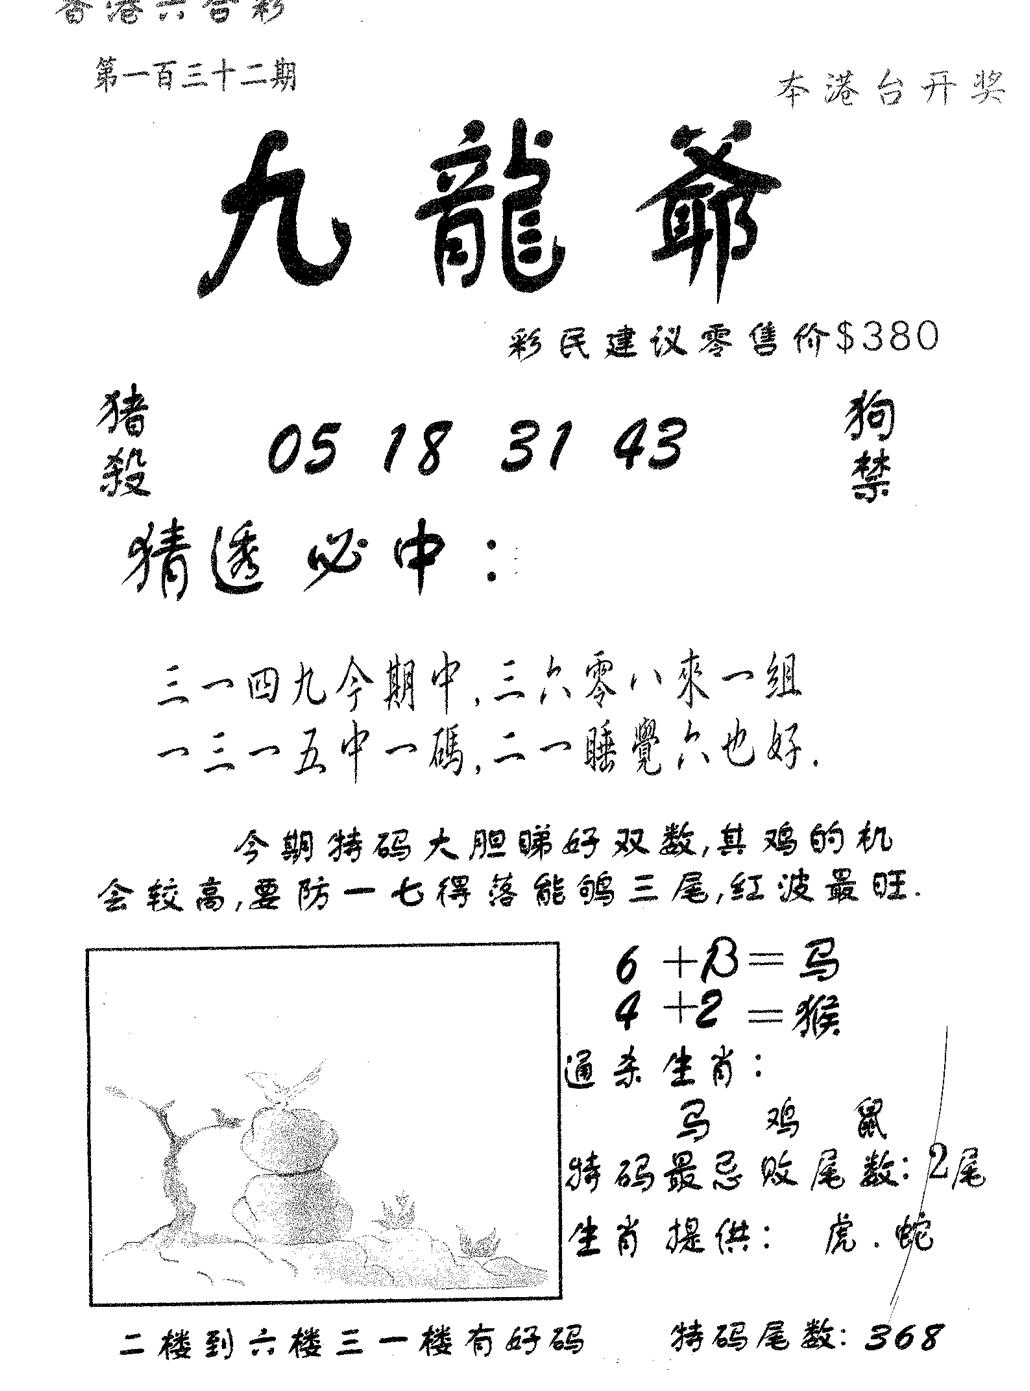 香港六合彩
第一百三十二期
本港台开奖
九龍爺
彩民建议零售价$380
猪殺
05 18 31 43
狗禁
猜透必中：
三一四九今期中,三六零八來一组
一三一五中一碼,二一睡覺六也好.
今期特码大胆睇好双数,其鸡的机
会较高,要防一七得落能鸲三尾,红波最旺.
6+B=马
4+2=猴
通杀生肖：
马 鸡 鼠
特码最忌败尾数：2尾
生肖提供： 虎.蛇
二楼到六楼三一楼有好码
特码尾数：368